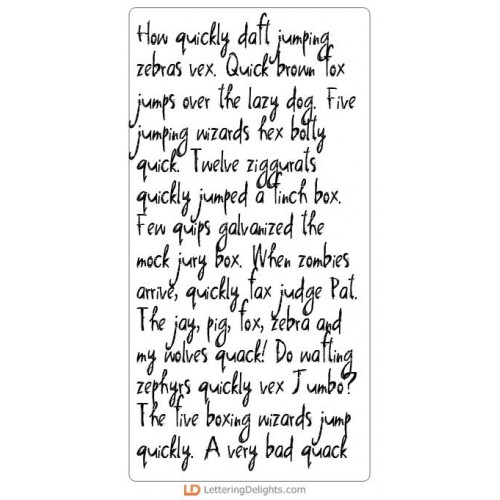 How quickly daft jumping
zebras vex. Quick brown fox
jumps over the lazy dog. Five
jumping wizards hex bolty
quick. Twelve ziggurats
quickly jumped a finch box.
Few quips galvanized the
mock jury box. When zombies
arrive, quickly fax judge Pat.
The jay, pig, fox, zebra and
my wolves quack! Do wafting
zephyrs quickly vex Jumbo?
The five boxing wizards jump
quickly. A very bad quack
LD LetteringDelights.com